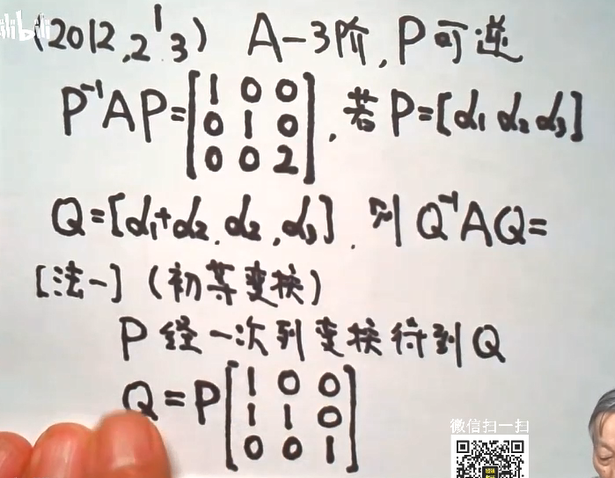 bilibili
(2012,2'3) A-3阶,P可逆
P⁻¹AP=[1 0 0; 0 1 0; 0 0 2],若P=[α₁ α₂ α₃]
Q=[α₁+α₂,α₂,α₃].则Q⁻¹AQ=
[法一](初等变换)
P经一次列变换得到Q
Q=P[1 0 0; 1 1 0; 0 0 1]
微信扫一扫